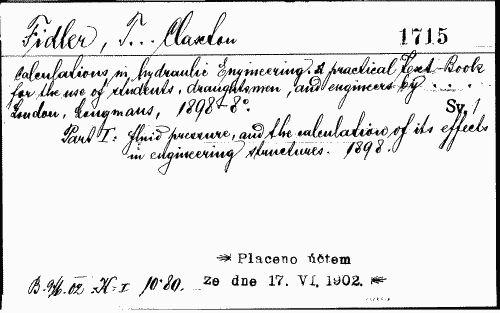 Fidler, T... Claxton 1715
Calculations in hydraulic Engineering. A practical Text-Book
for the use of students, draughtsmen, and engineers by . . . .
London, Longmans, 1898– 8°. Sy, 1
Part I: fluid pressure, and the calculation of its effects
in engineering structures. 1898.
Placeno účtem
ze dne 17. VI. 1902.
B. 9/6. 02 K-I 10·80.